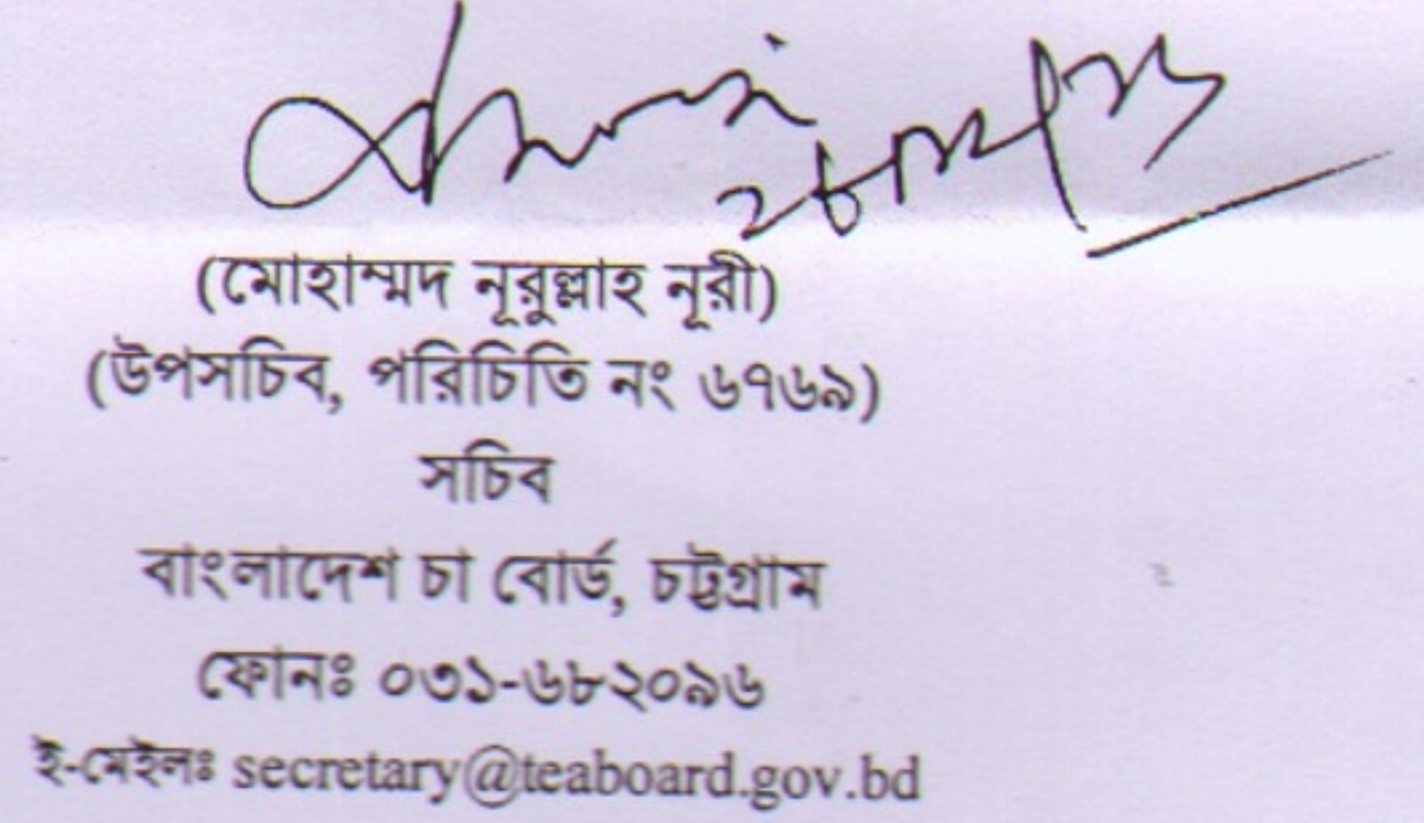 (মোহাম্মদ নূরুল্লাহ নূরী)
(উপসচিব, পরিচিতি নং ৬৭৬৯)
সচিব
বাংলাদেশ চা বোর্ড, চট্টগ্রাম
ফোনঃ ০৩১-৬৮২০৯৬
ই-মেইলঃ secretary@teaboard.gov.bd